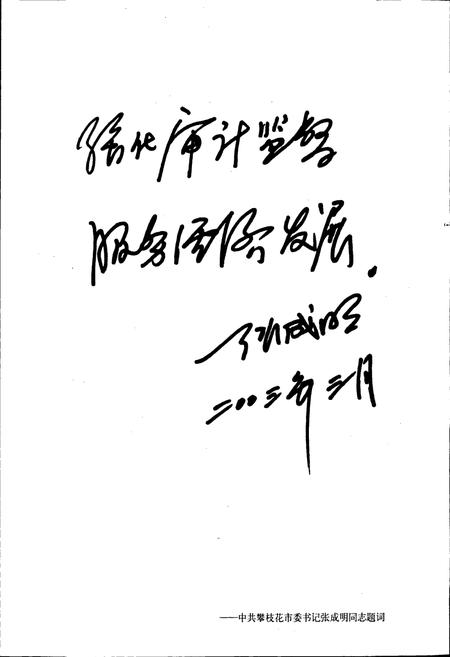 强化审计监督
服务经济发展.
张成明
二00三年三月
——中共攀枝花市委书记张成明同志题词